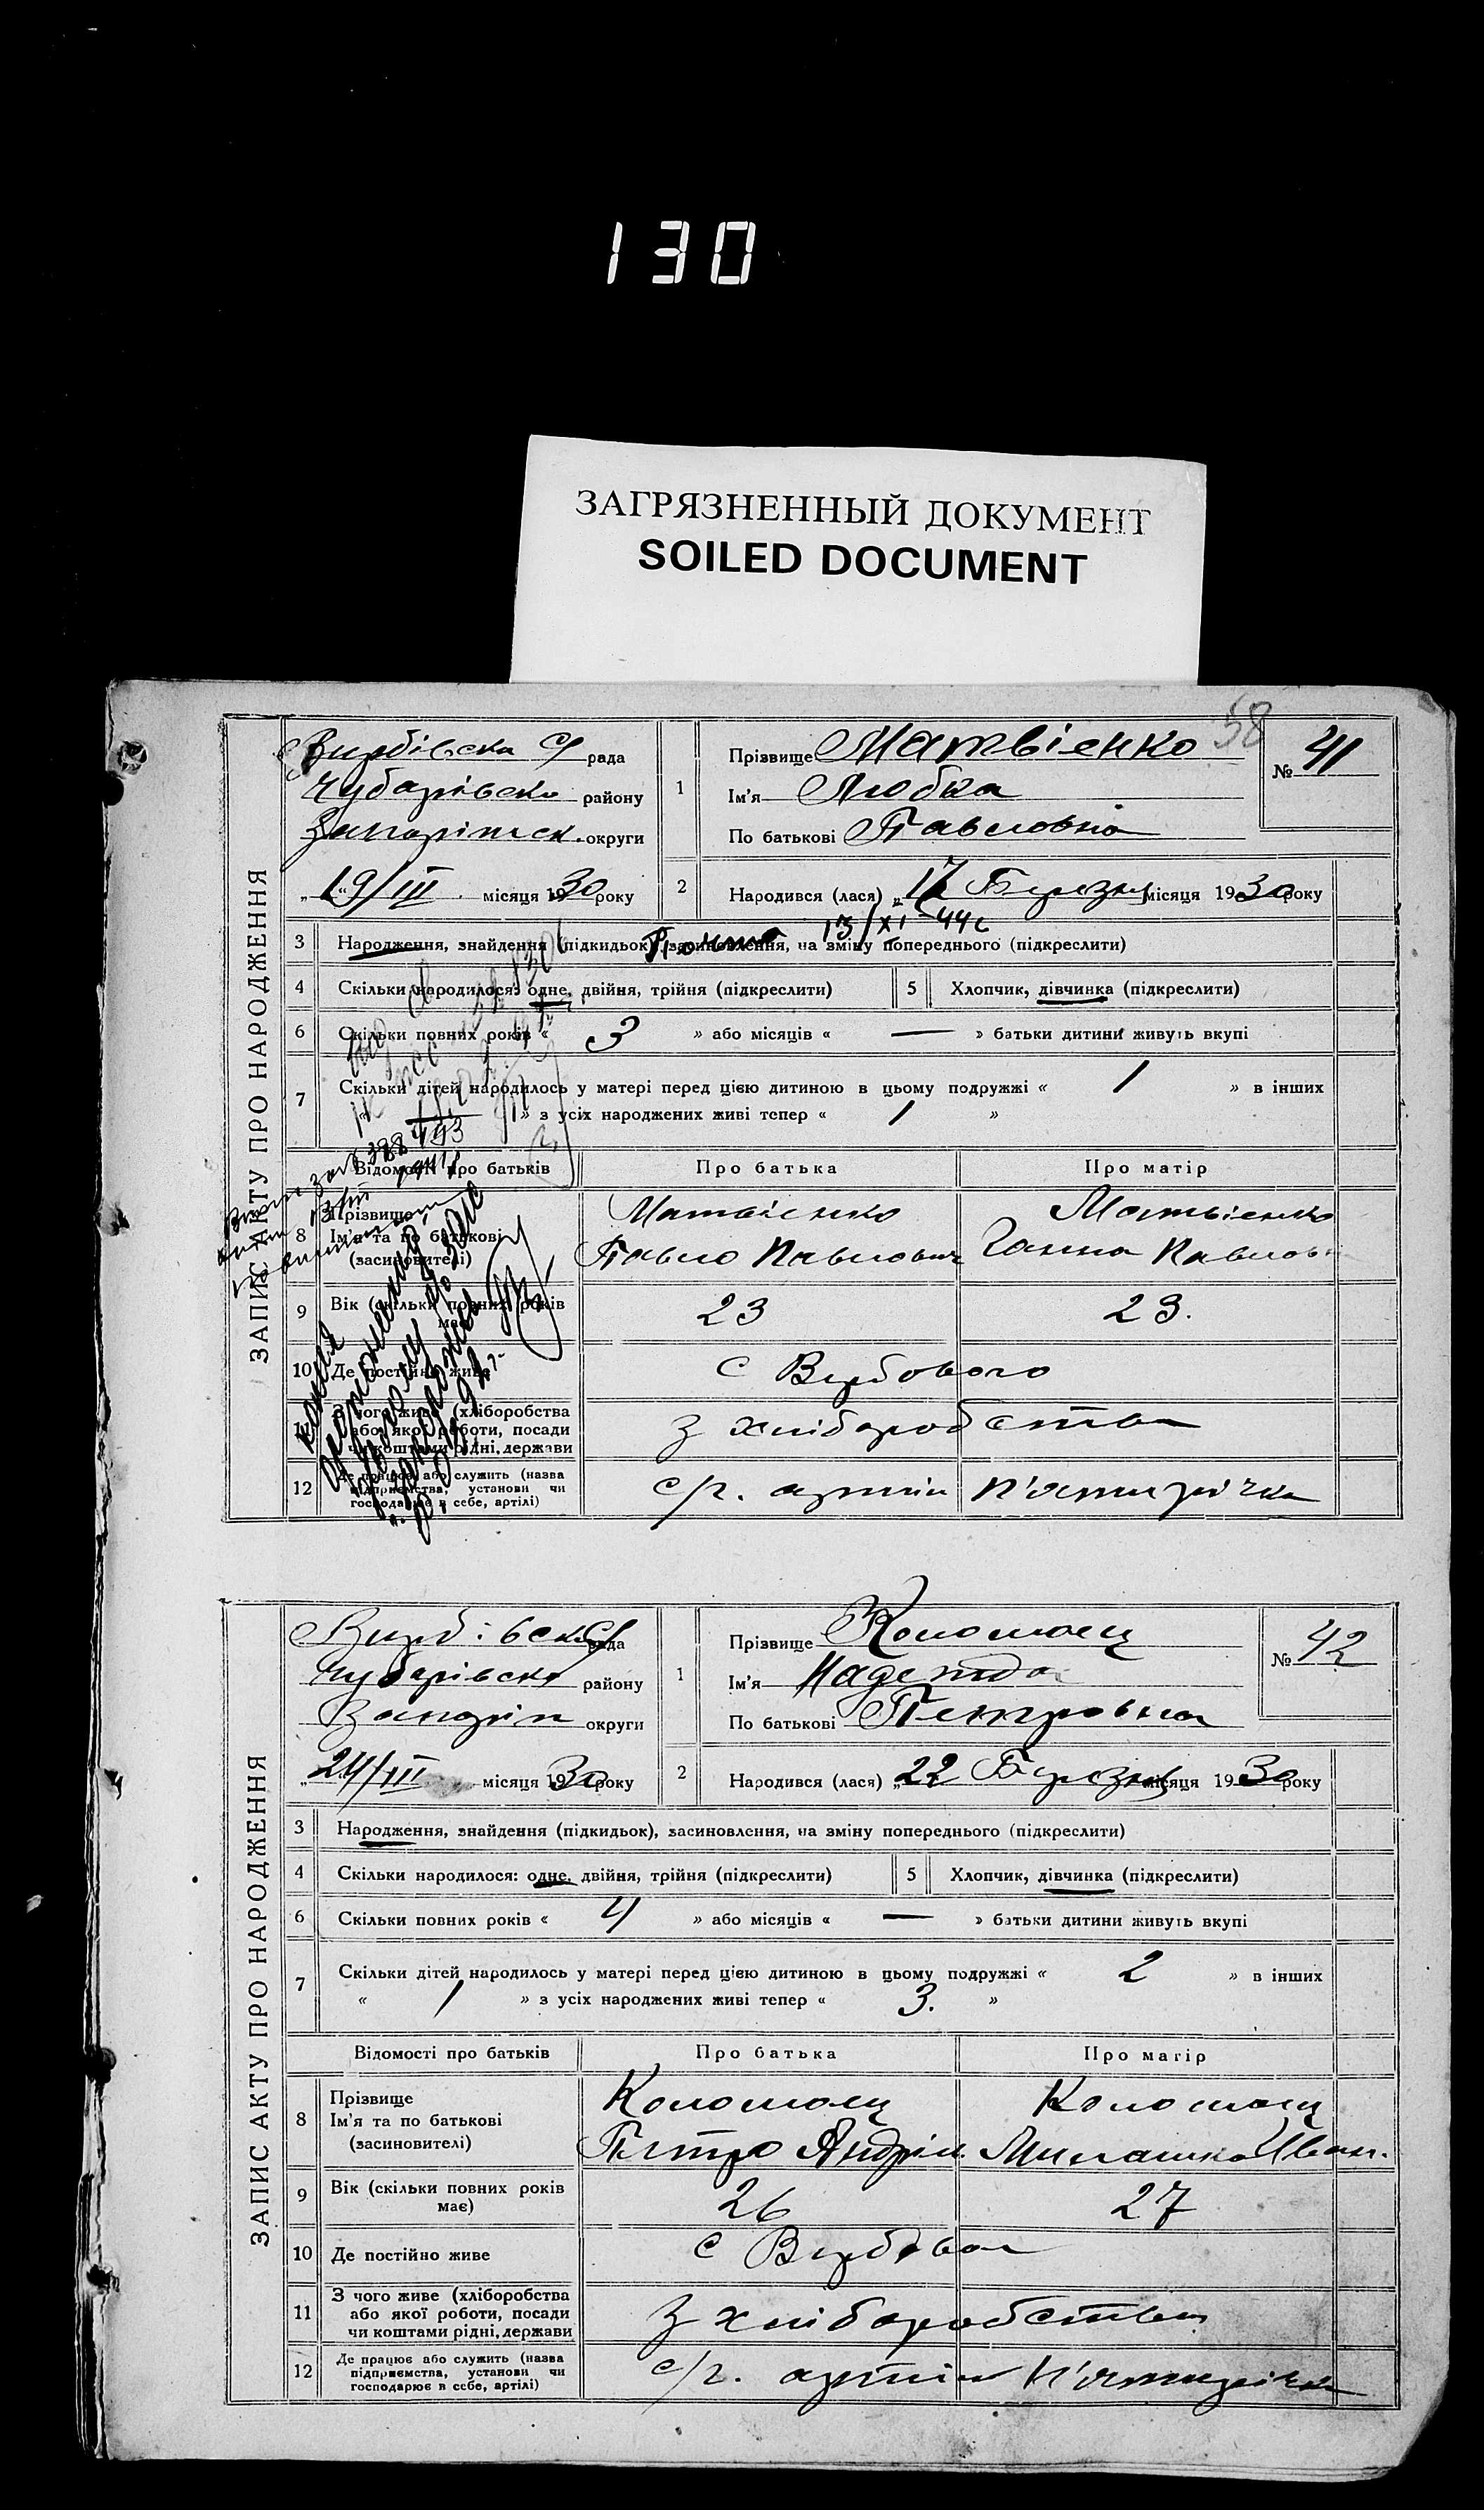 130
ЗАГРЯЗНЕННЫЙ ДОКУМЕНТ
SOILED DOCUMENT
58
ЗАПИС АКТУ ПРО НАРОДЖЕННЯ
Вирбівска с/рада
Чубарівско району
Запоріжск. округи
„19/III місяця 1930 року
1 Прізвище Матвієнко
Ім'я Любка
По батькові Павловна
№ 41
2 Народився (лася) „17 Березня місяця 1930 року
13/XI-44
3 Народження, знайдення (підкидьок), засиновлення, на зміну попереднього (підкреслити)
4 Скільки народилося: одне, двійня, трійня (підкреслити) 5 Хлопчик, дівчинка (підкреслити)
6 Скільки повних років « 3 » або місяців « — » батьки дитини живуть вкупі
7 Скільки дітей народилось у матері перед цією дитиною в цьому подружжі « 1 » в інших
» з усіх народжених живі тепер « 1 »
Відомості про батьків Про батька Про матір
8 Прізвище Ім'я та по батькові (засиновителі)
Матвієнко Матвієнко
Павло Павлович Ганна Павловн
9 Вік (скільки повних років має) 23 23.
10 Де постійно живе с Вербового
11 З чого живе (хліборобства або якої роботи, посади чи коштами рідні, держави з хліборобства
12 Де працює або служить (назва підприємства, установи чи господарює в себе, артілі) с/г. артіл п'ятирічка
ЗАПИС АКТУ ПРО НАРОДЖЕННЯ
Вирбівск с/рада
Чубарівско району
Запоріж округи
„24/III місяця 1930 року
1 Прізвище Коломоец
Ім'я Надежда
По батькові Петровна
№ 42
2 Народився (лася) „22 Березня місяця 1930 року
3 Народження, знайдення (підкидьок), засиновлення, на зміну попереднього (підкреслити)
4 Скільки народилося: одне, двійня, трійня (підкреслити) 5 Хлопчик, дівчинка (підкреслити)
6 Скільки повних років « 4 » або місяців « — » батьки дитини живуть вкупі
7 Скільки дітей народилось у матері перед цією дитиною в цьому подружжі « 2 » в інших
« 1 » з усіх народжених живі тепер « 3. »
Відомості про батьків Про батька Про матір
8 Прізвище Ім'я та по батькові (засиновителі)
Коломоец Коломоец
Петро Андрій. Милашка Иван.
9 Вік (скільки повних років має) 26 27
10 Де постійно живе с Вербовом
11 З чого живе (хліборобства або якої роботи, посади чи коштами рідні, держави З хліборобства
12 Де працює або служить (назва підприємства, установи чи господарює в себе, артілі) с/г. артіл П'ятирічка